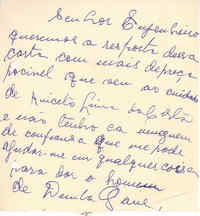 Senhor Engenheiro
queremos a resposta dessa
carta com mais depreça
pocivel que vem ao cuidado
de Aniceto Lima
e nao tenho ca ninguem
de confiança que me pode
ajudar-me em qualquer coisa
para por o homem
de Demba Gane,